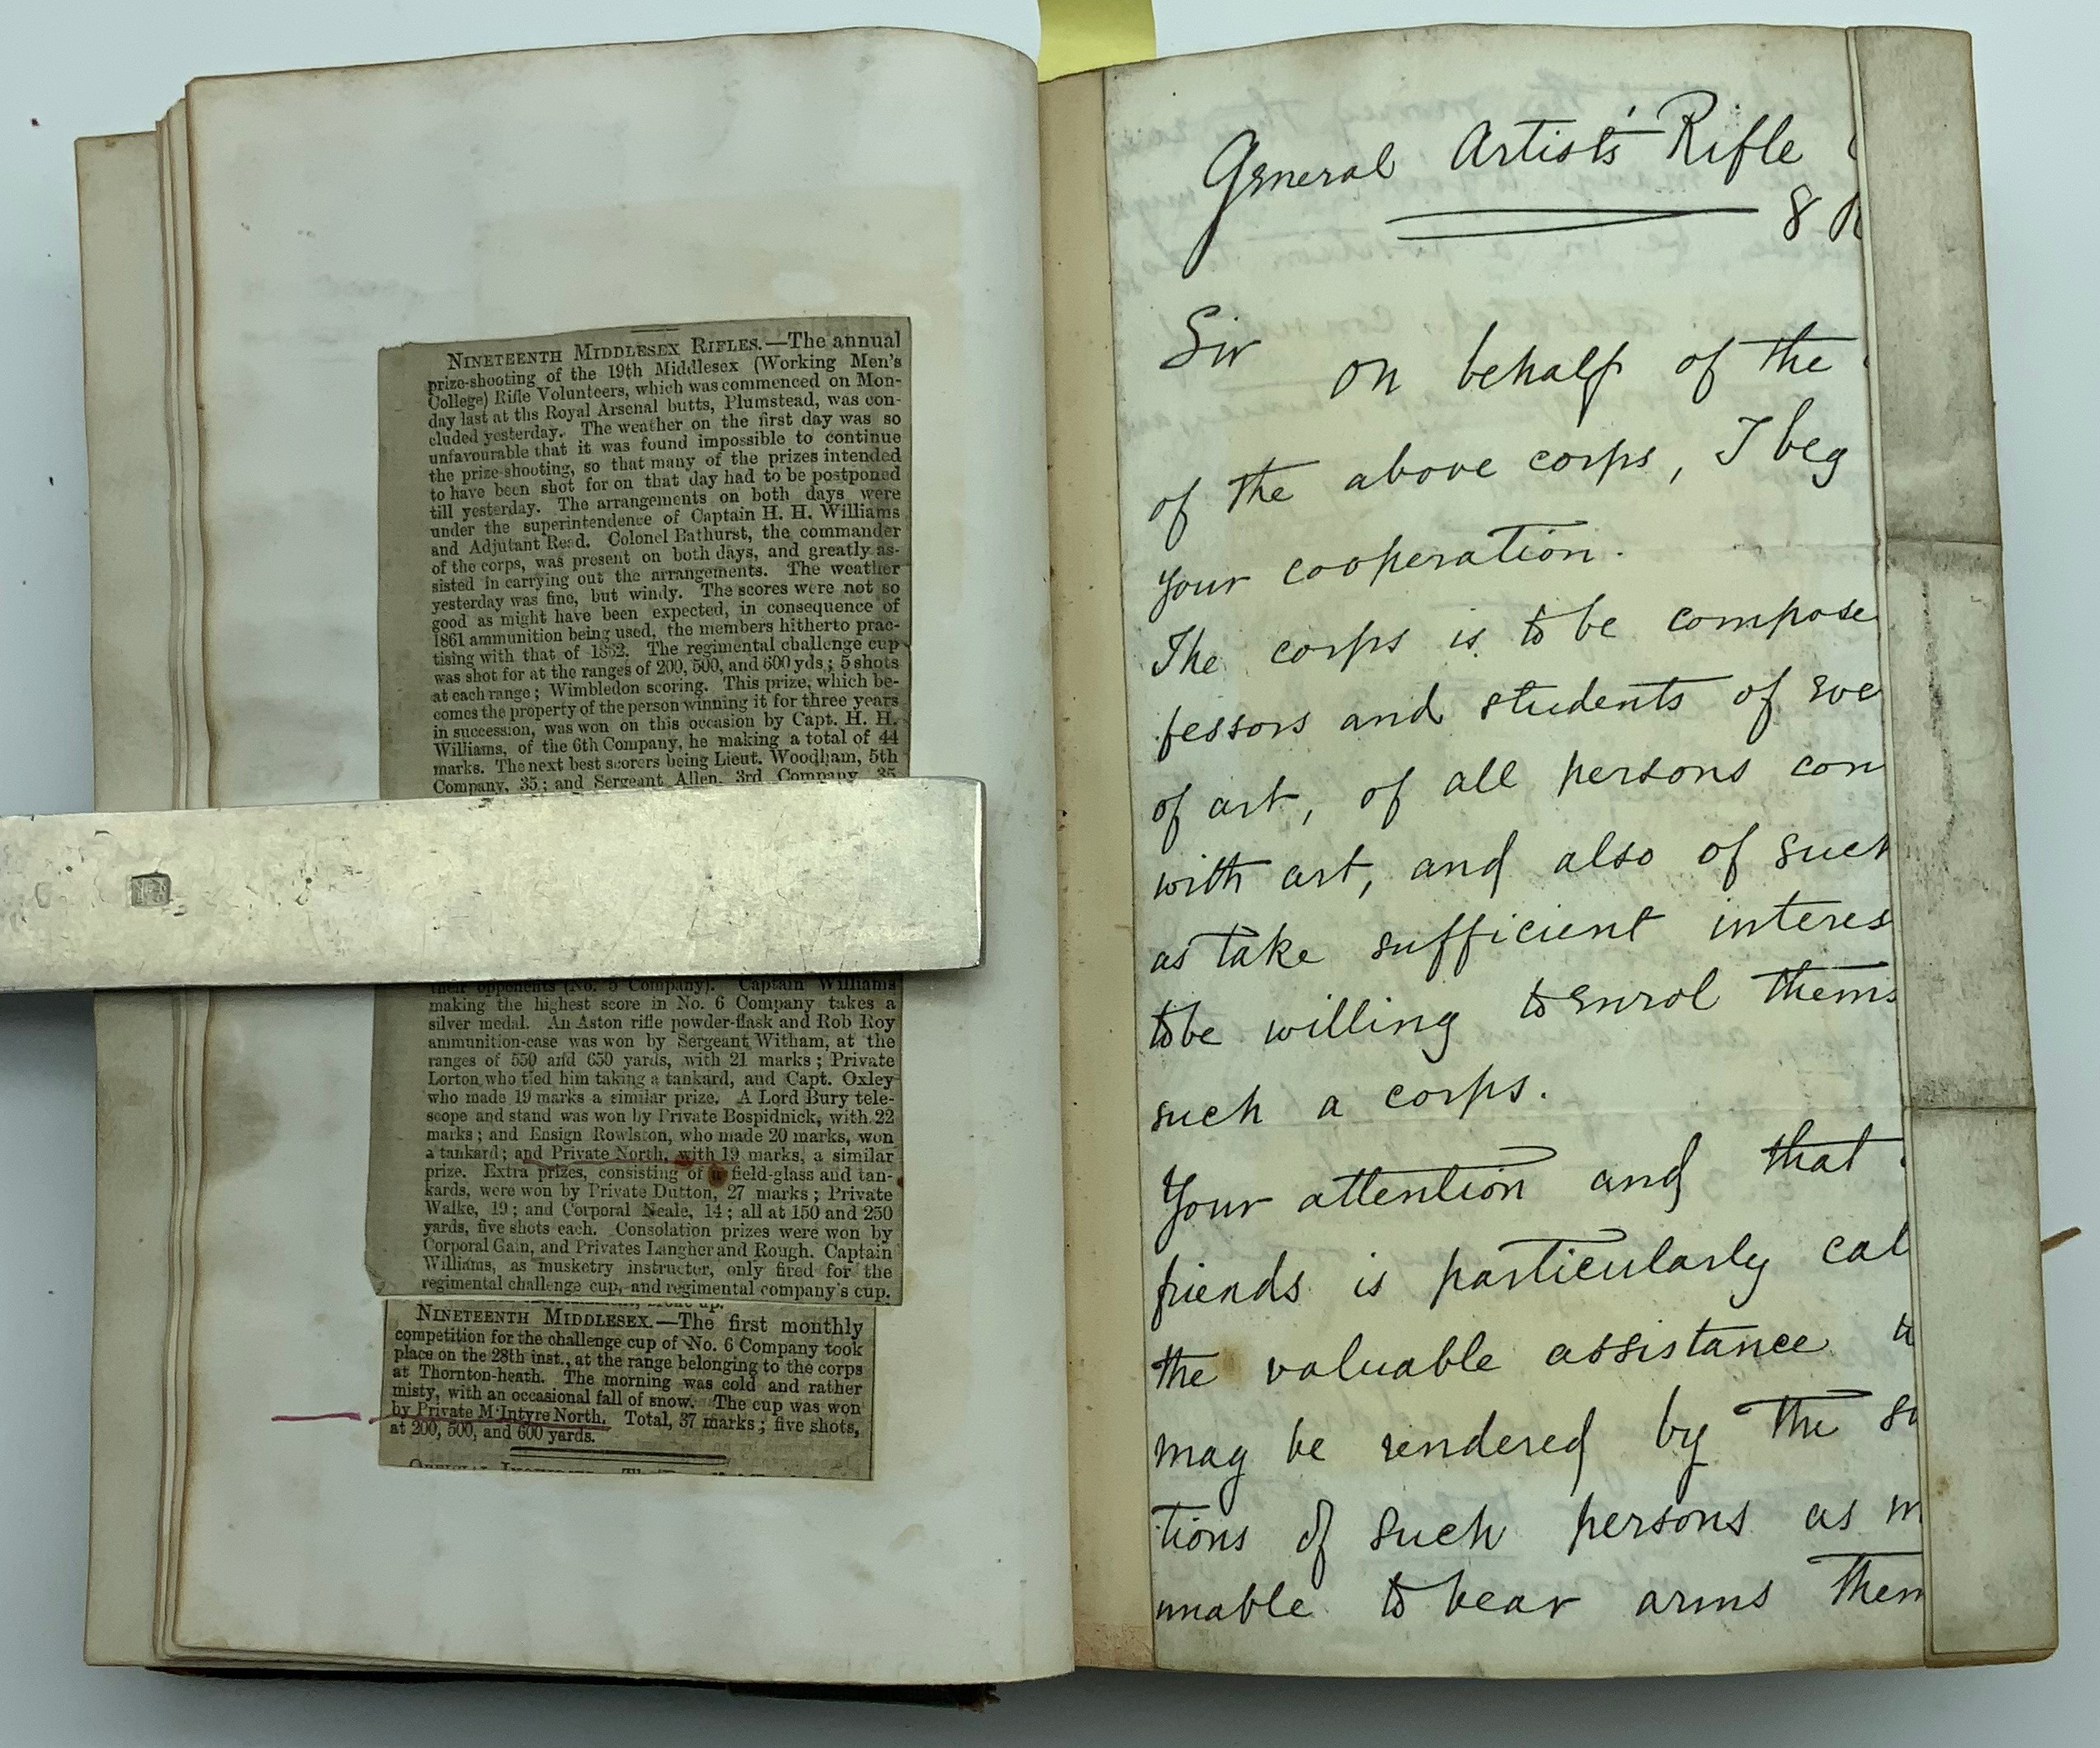 NINETEENTH MIDDLESEX RIFLES.—The annual
prize-shooting of the 19th Middlesex (Working Men's
College) Rifle Volunteers, which was commenced on Mon-
day last at ths Royal Arsenal butts, Plumstead, was con-
cluded yesterday. The weather on the first day was so
unfavourable that it was found impossible to continue
the prize-shooting, so that many of the prizes intended
to have been shot for on that day had to be postponed
till yesterday. The arrangements on both days were
under the superintendence of Captain H. H. Williams
and Adjutant Read. Colonel Bathurst, the commander
of the corps, was present on both days, and greatly as-
sisted in carrying out the arrangements. The weather
yesterday was fine, but windy. The scores were not so
good as might have been expected, in consequence of
1861 ammunition being used, the members hitherto prac-
tising with that of 1862. The regimental challenge cup
was shot for at the ranges of 200, 500, and 600 yds; 5 shots
at each range; Wimbledon scoring. This prize, which be-
comes the property of the person winning it for three years
in succession, was won on this occasion by Capt. H. H.
Williams, of the 6th Company, he making a total of 44
marks. The next best scorers being Lieut. Woodham, 5th
Company, 35; and Sergeant Allen, 3rd Company, 35
their opponents (No. 5 Company). Captain Williams
making the highest score in No. 6 Company takes a
silver medal. An Aston rifle powder-flask and Rob Roy
ammunition-case was won by Sergeant Witham, at the
ranges of 550 and 650 yards, with 21 marks; Private
Lorton who tied him taking a tankard, and Capt. Oxley
who made 19 marks a similar prize. A Lord Bury tele-
scope and stand was won by Private Bospidnick, with 22
marks; and Ensign Rowlston, who made 20 marks, won
a tankard; and Private North, with 19 marks, a similar
prize. Extra prizes, consisting of a field-glass and tan-
kards, were won by Private Dutton, 27 marks; Private
Walke, 19; and Corporal Neale, 14; all at 150 and 250
yards, five shots each. Consolation prizes were won by
Corporal Gain, and Privates Langher and Rough. Captain
Williams, as musketry instructor, only fired for the
regimental challenge cup, and regimental company's cup.
NINETEENTH MIDDLESEX.—The first monthly
competition for the challenge cup of No. 6 Company took
place on the 28th inst., at the range belonging to the corps
at Thornton-heath. The morning was cold and rather
misty, with an occasional fall of snow. The cup was won
by Private M'Intyre North. Total, 37 marks; five shots,
at 200, 500, and 600 yards.
General Artists' Rifle
8
Sir
On behalf of the
of the above corps, I beg
your cooperation.
The corps is to be compose
fessors and students of eve
of art, of all persons con
with art, and also of such
as take sufficient interes
to be willing to enrol thems
such a corps.
Your attention and that
friends is particularly cal
the valuable assistance w
may be rendered by the su
tions of such persons as m
unable to bear arms them